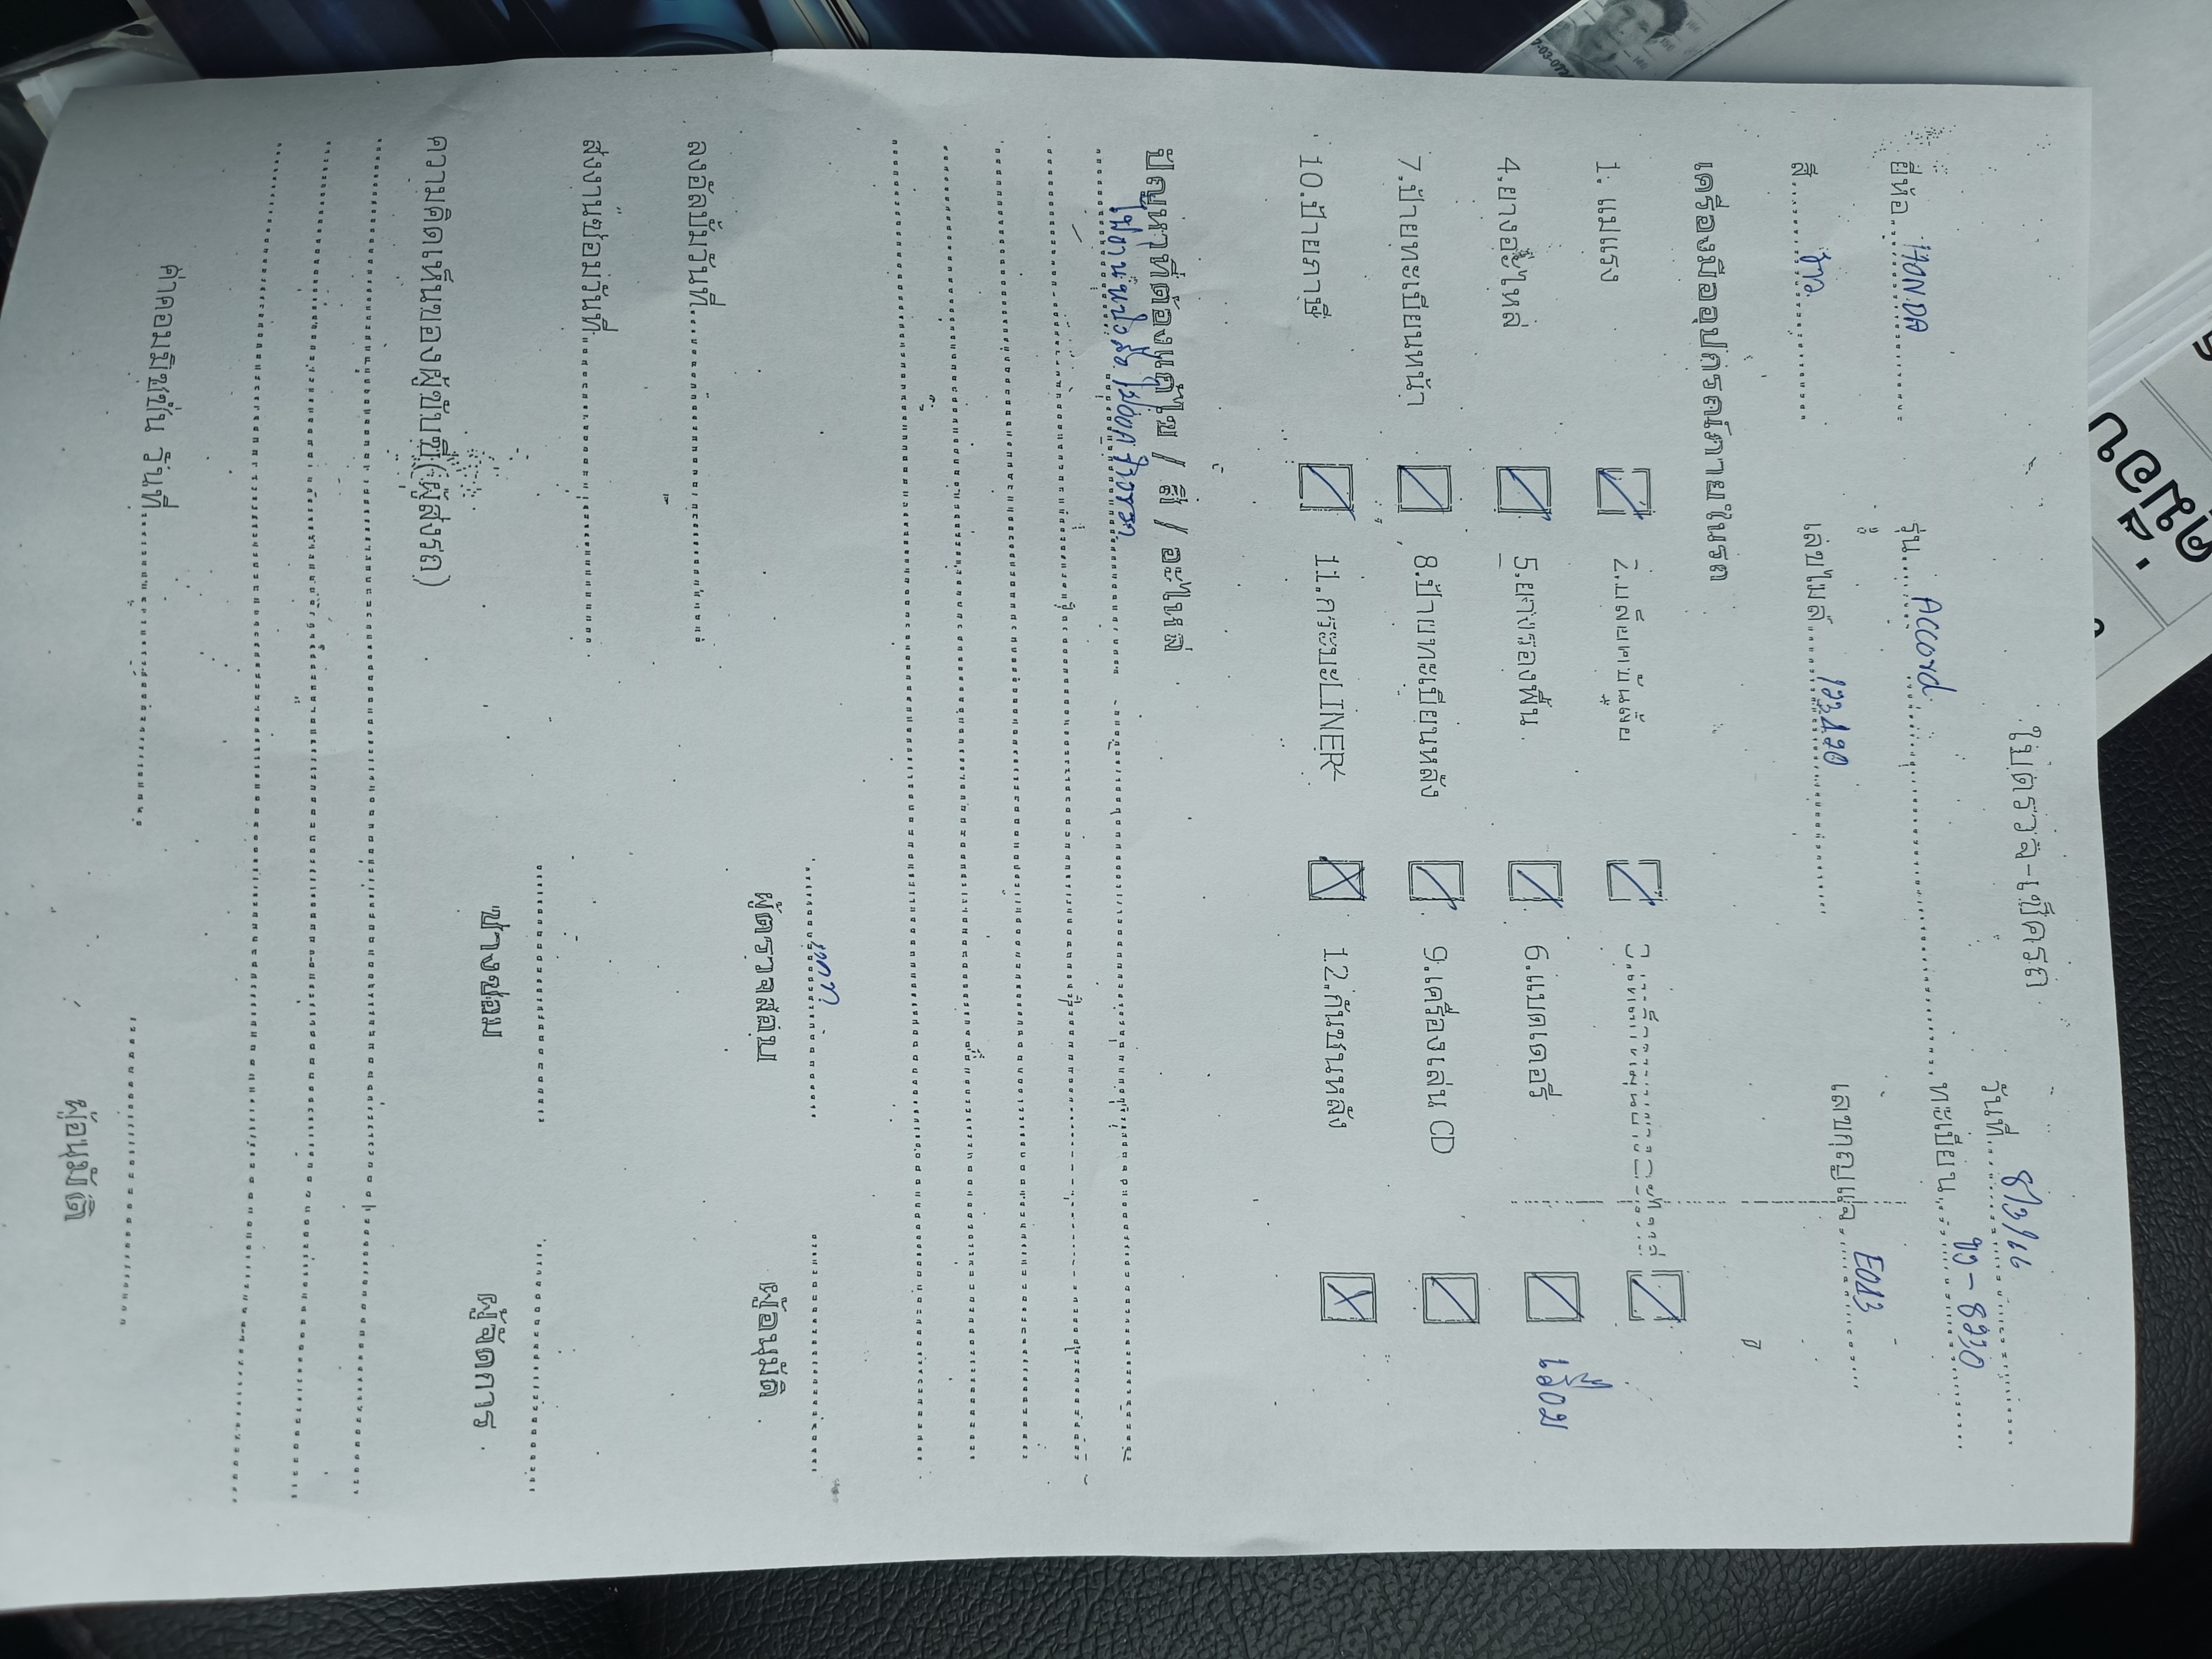 ใบตรวจ-เช็ครถ
วันที่ 8/3/66
ยี่ห้อ HONDA รุ่น Accord ทะเบียน ขง-8220
สี ขาว เลขไมล์ เลขกุญแจ E013
เครื่องมืออุปกรณ์ภายในรถ
1. แม่แรง
4.ยางอะไหล่ 5.ยางรองพื้น 6.แบตเตอรี่
7.ป้ายทะเบียนหน้า 8.ป้ายทะเบียนหลัง 9.เครื่องเล่น CD
10.ป้ายภาษี 11.กระบะLINER 12.กันชนหลัง
ปัญหาที่ต้องแก้ไข / สี / อะไหล่
ผู้ตรวจสอบ ผู้อนุมัติ
ลงอัลบั้มวันที่
ส่งงานซ่อมวันที่
ช่างซ่อม ผู้จัดการ
ความคิดเห็นของผู้ขับขี่(ผู้ส่งรถ)
ค่าคอมมิชชั่น วันที่
ผู้อนุมัติ